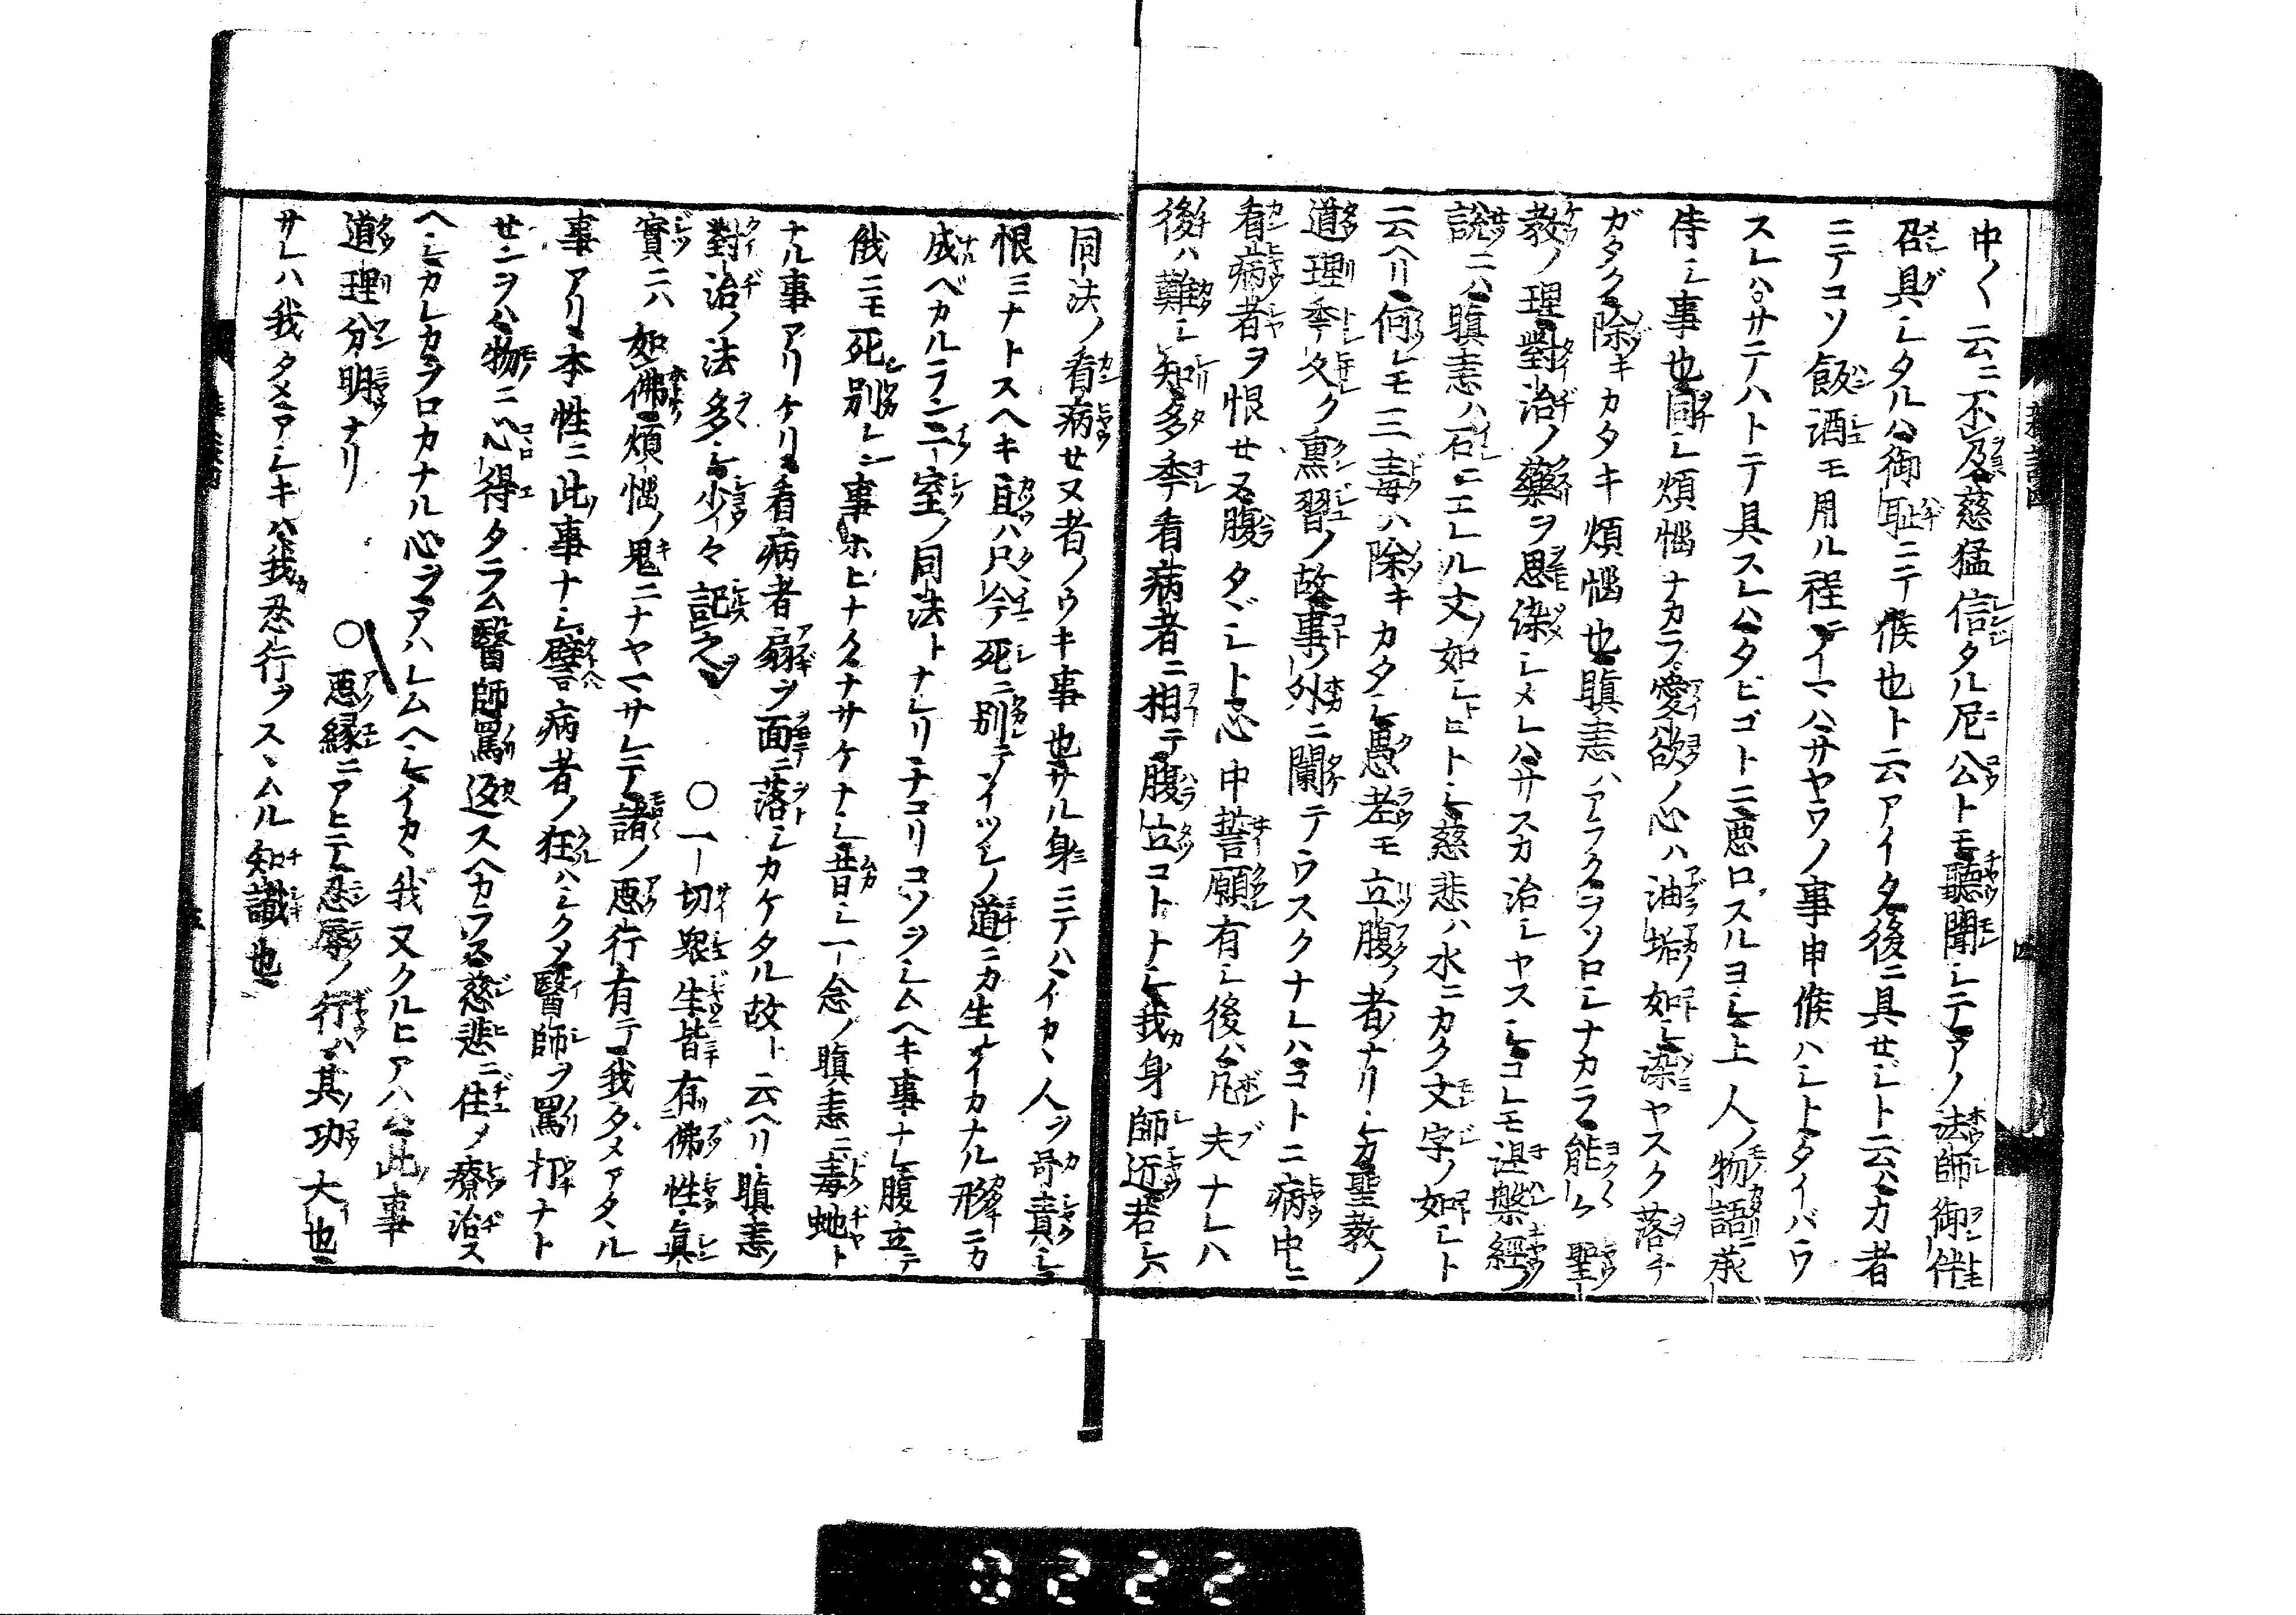 中〱云ニ不及慈猛信タル尼公トモ聽聞シテアノ法師御伴
召具シタルハ御耻ニテ候也ト云アイタ後ニ具セジト云ハカ者
ニテコソ飯酒モ用ル程テイマハサヤウノ事申候ハシトタイバウ
スレハサテハトテ具スレハタビゴトニ悪ロスルヨシ上人ノ物語承
侍シ事也同シ煩惱ナカラ愛欲ノ心ハ油垢ノ如シ染ヤスク落チ
ガタク除キカタキ煩惱也瞋恚ハアラクヲソロシナカラ能〱聖
教ノ理對治ノ藥ヲ思染シメレハサスカ治シヤスシコレモ涅槃經ノ
説ニハ瞋恚ハ石ニエレル文ノ如シヒトシ慈悲ハ水ニカク文字ノ如シト
云ヘリ何レモ三毒ハ除キカタシ愚老モ立腹ノ者ナリシカ聖教ノ
道理年久ク熏習ノ故事ノ外ニ闌テウスクナレハコトニ病中ニ
看病者ヲ恨セス腹タヾシト心中誓願有シ後ハ凡夫ナレハ
後ハ難シ知多年看病者ニ相テ腹立コトトシ我身師近若シハ
同法ノ看病セヌ者ノウキ事也サル身ニテハイカヽ人ヲ呵責シ
恨ミナトスヘキ且ハ只今死ニ別テイツレノ道ニカ生イカナル形ニカ
成ベカルランニ一室ノ同法トナレリナコリコソヲシムヘキ事ナレ腹立テ
餓ニモ死別レン事ホヒナクナサケナシ昔シ一念ノ瞋恚ニ毒蛇ト
ナル事アリケリ看病者扇ヲ面ニ落シカケタル故ト云ヘリ瞋恚ノ
對治ノ法多シ少々記之 〇一切衆生皆有佛性眞
實ニハ如佛煩惱ノ鬼ニナヤマサレテ諸ノ悪行有テ我タメアタル
事アリ本性ニ此事ナシ譬病者ノ狂ハシクメ醫師ヲ罵打ナト
センヲハ物ニ心得タラム醫師罵返スヘカラス慈悲ニ住メ療治ス
ヘシカレカヲロカナル心ヲアハレムヘシイカヽ我又クルヒアハム此事
道理分明ナリ 〇悪縁ニアヒテ忍辱ノ行ハ其ノ功大也
サレハ我タメアシキハ我忍行ヲスヽムル知識也